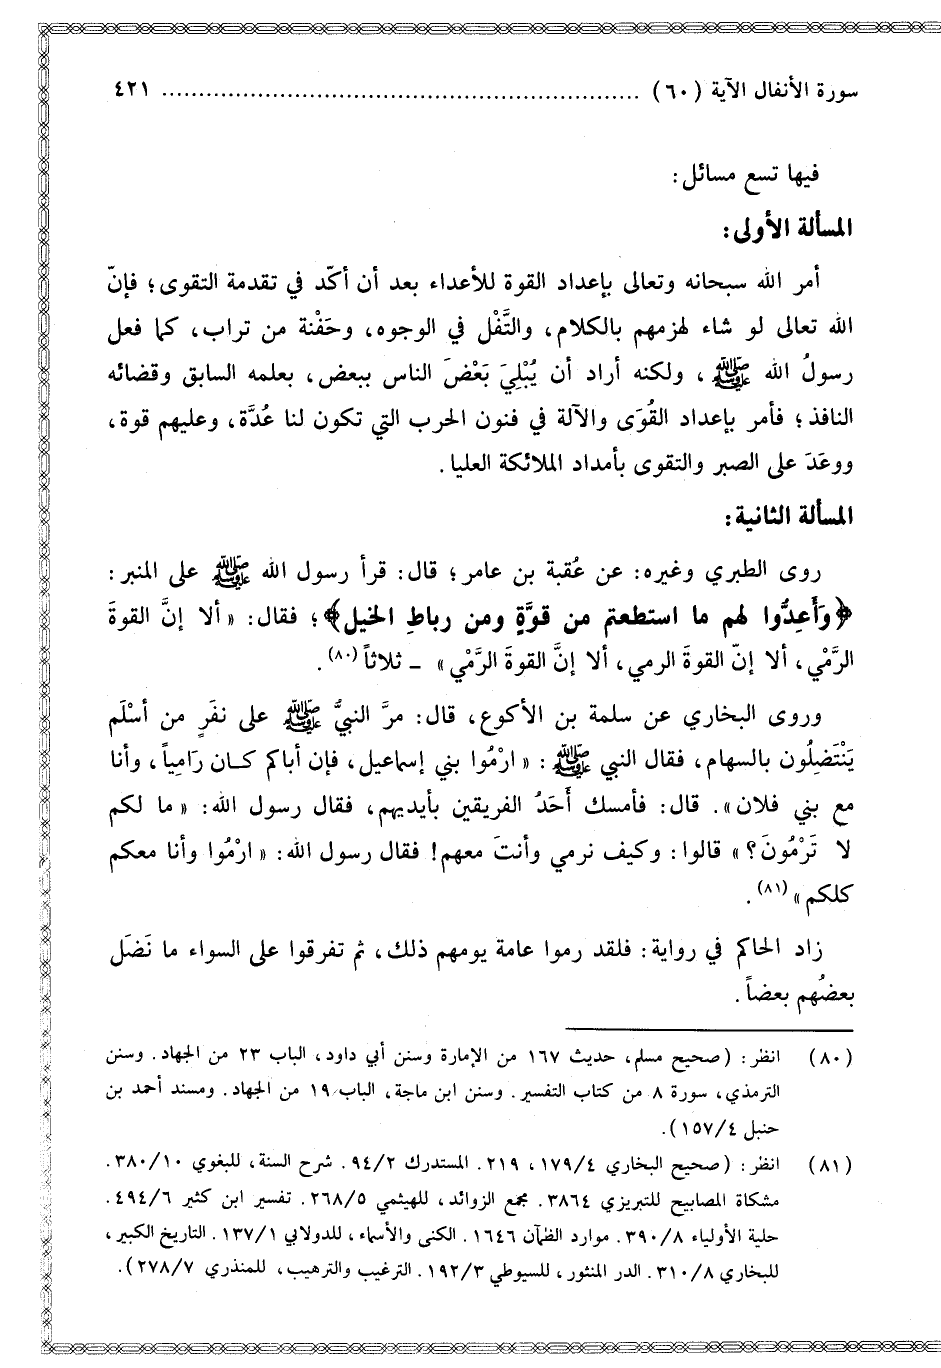 سورة الأنفال الآية (٦٠) ................................................................ ٤٢١
فيها تسع مسائل:
المسألة الأولى:
أمر الله سبحانه وتعالى بإعداد القوة للأعداء بعد أن أكّد في تقدمة التقوى؛ فإنّ
الله تعالى لو شاء لهزمهم بالكلام، والتَّفْل في الوجوه، وحَفْنة من تراب، كما فعل
رسولُ الله ﷺ، ولكنه أراد أن يُبْلِيَ بَعْضَ الناس ببعض، بعلمه السابق وقضائه
النافذ؛ فأمر بإعداد القُوَى والآلة في فنون الحرب التي تكون لنا عُدَّة، وعليهم قوة،
ووعَدَ على الصبر والتقوى بأمداد الملائكة العليا.
المسألة الثانية:
روى الطبري وغيره: عن عُقبة بن عامر؛ قال: قرأ رسول الله ﷺ على المنبر:
﴿وَأَعِدُّوا لهم ما استطعتم من قوَّةٍ ومن رباطِ الخيل﴾؛ فقال: «ألا إنَّ القوةَ
الرَّمْي، ألا إنّ القوةَ الرمي، ألا إنَّ القوةَ الرَّمْي» - ثلاثاً (٨٠).
وروى البخاري عن سلمة بن الأكوع، قال: مرَّ النبيُّ ﷺ على نفَرٍ من أسْلَم
يَنْتَضِلُون بالسهام، فقال النبي ﷺ: «ارْمُوا بني إسماعيل، فإن أباكم كان رَامِياً، وأنا
مع بني فلان». قال: فأمسك أَحَدُ الفريقين بأيديهم، فقال رسول الله: «ما لكم
لا تَرْمُونَ؟» قالوا: وكيف نرمي وأنتَ معهم! فقال رسول الله: «ارْمُوا وأنا معكم
كلكم» (٨١).
زاد الحاكم في رواية: فلقد رموا عامة يومهم ذلك، ثم تفرقوا على السواء ما نَضَل
بعضُهم بعضاً.
(٨٠) انظر: (صحيح مسلم، حديث ١٦٧ من الإمارة وسنن أبي داود، الباب ٢٣ من الجهاد. وسنن
الترمذي، سورة ٨ من كتاب التفسير. وسنن ابن ماجة، الباب ١٩ من الجهاد. ومسند أحمد بن
حنبل ١٥٧/٤).
(٨١) انظر: (صحيح البخاري ١٧٩/٤، ٢١٩. المستدرك ٩٤/٢. شرح السنة، للبغوي ٣٨٠/١٠.
مشكاة المصابيح للتبريزي ٣٨٦٤. مجمع الزوائد، للهيثمي ٢٦٨/٥. تفسير ابن كثير ٤٩٤/٦.
حلية الأولياء ٣٩٠/٨. موارد الظمآن ١٦٤٦. الكنى والأسماء، للدولابي ١٣٧/١. التاريخ الكبير،
للبخاري ٣١٠/٨. الدر المنثور، للسيوطي ١٩٢/٣. الترغيب والترهيب، للمنذري ٢٧٨/٧).